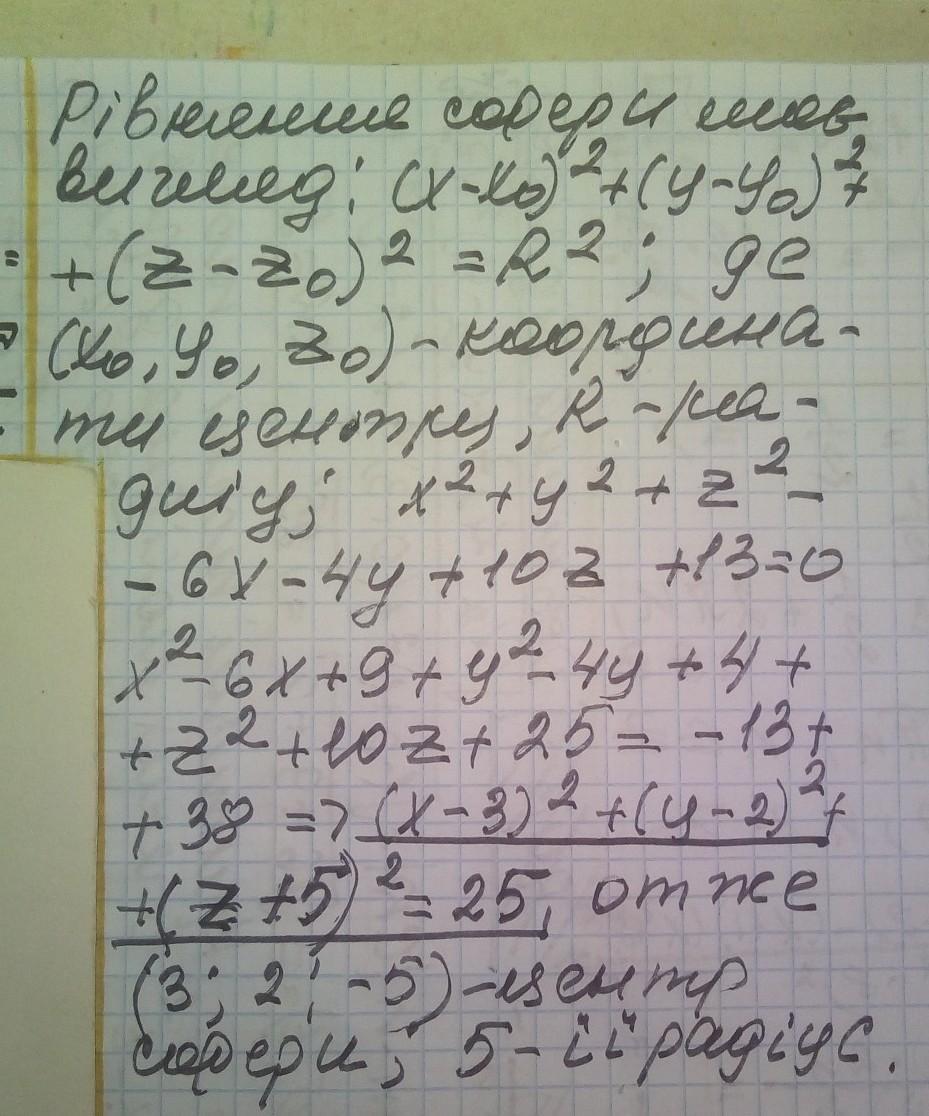 Рівняння сфери має
вигляд: (x-x₀)²+(y-y₀)²+
+(z-z₀)²=R²; де
(x₀, y₀, z₀)-координа-
ти центру, R-ра-
діус; x²+y²+z²-
-6x-4y+10z+13=0
x²-6x+9+y²-4y+4+
+z²+10z+25=-13+
+38 => (x-3)²+(y-2)²+
+(z+5)²=25, отже
(3; 2; -5)-центр
сфери; 5-її радіус.